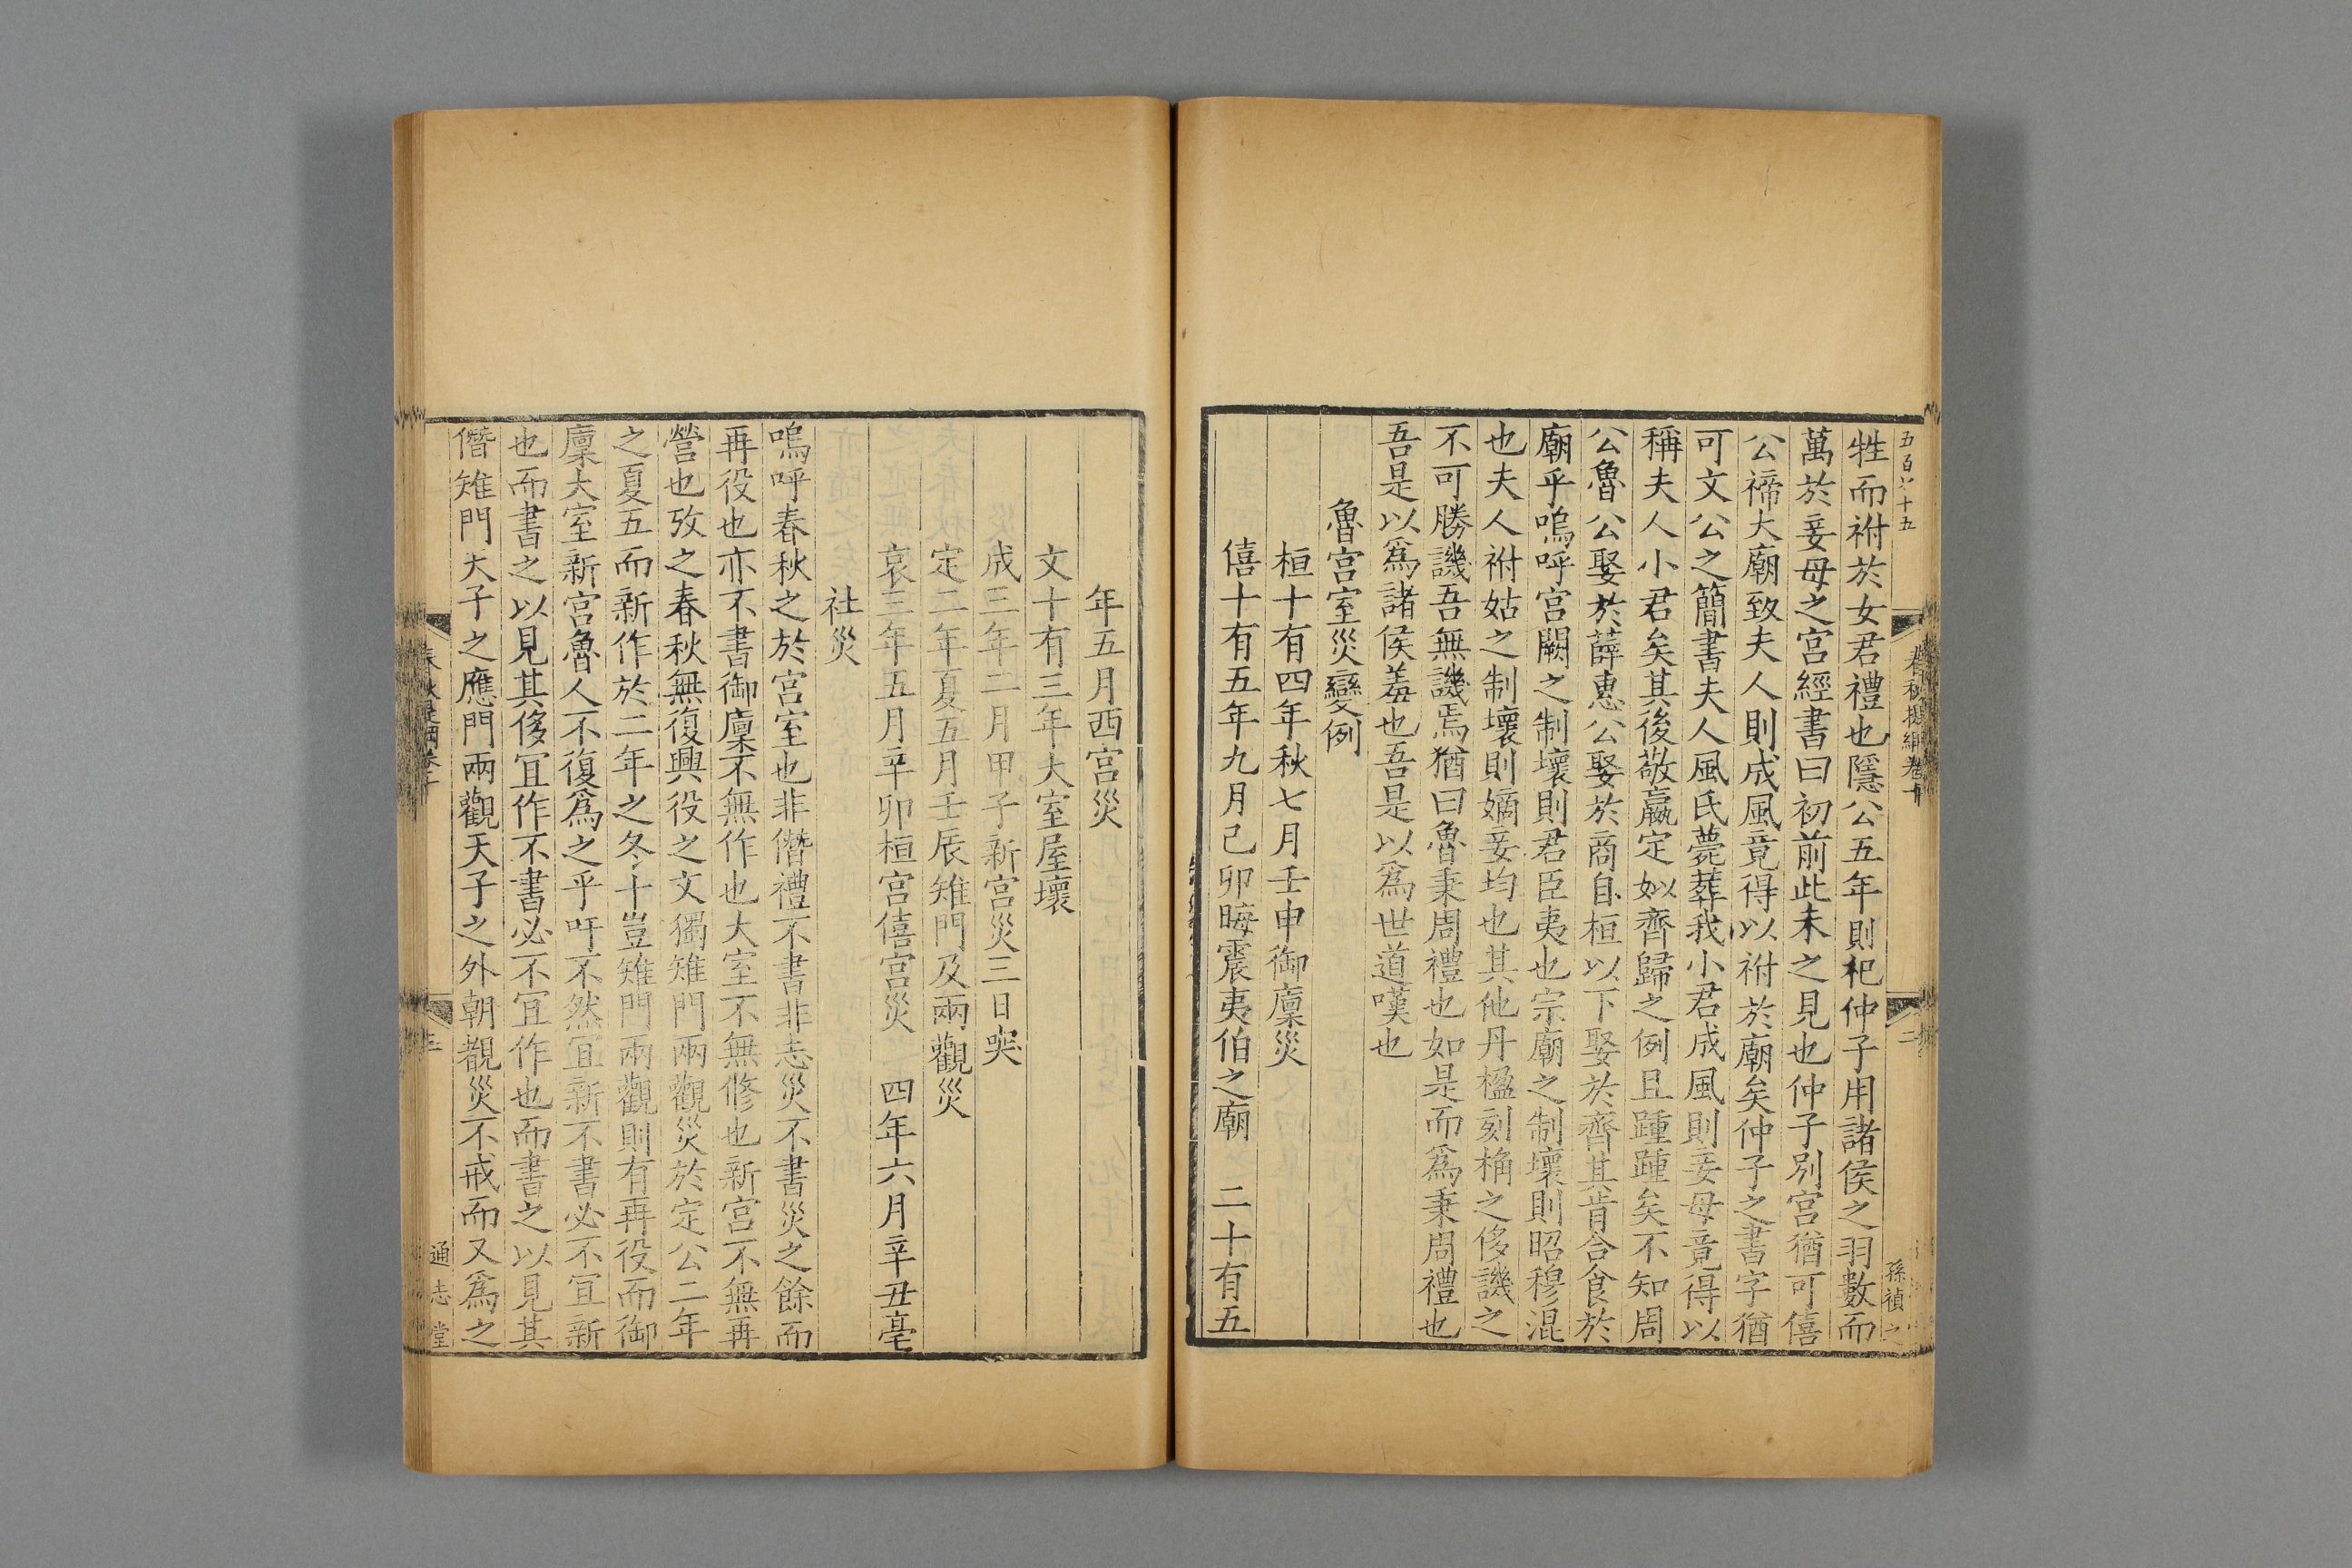 五百八十五
春秋提綱卷十
二
孫禎之
牲而祔於女君禮也隱公五年則祀仲子用諸侯之羽數而
萬於妾母之宮經書曰初前此未之見也仲子別宮猶可僖
公禘大廟致夫人則成風竟得以祔於廟矣仲子之書字猶
可文公之簡書夫人風氏薨葬我小君成風則妾母竟得以
稱夫人小君矣其後敬嬴定姒齊歸之例且踵踵矣不知周
公魯公娶於薛惠公娶於商自桓以下娶於齊其肯合食於
廟乎嗚呼宮闕之制壞則君臣夷也宗廟之制壞則昭穆混
也夫人祔姑之制壞則嫡妾均也其他丹楹刻桷之侈譏之
不可勝譏吾無譏焉猶曰魯秉周禮也如是而為秉周禮也
吾是以為諸侯羞也吾是以為世道嘆也
魯宮室災變例
桓十有四年秋七月壬申御廩災
僖十有五年九月己卯晦震夷伯之廟　二十有五
年五月西宮災
文十有三年大室屋壞
成三年二月甲子新宮災三日哭
定二年夏五月壬辰雉門及兩觀災
哀三年五月辛卯桓宮僖宮災　四年六月辛丑亳
社災
嗚呼春秋之於宮室也非僭禮不書非志災不書災之餘而
再役也亦不書御廩不無作也大室不無修也新宮不無再
營也攷之春秋無復興役之文獨雉門兩觀災於定公二年
之夏五而新作於二年之冬十豈雉門兩觀則有再役而御
廩大室新宮魯人不復為之乎吁不然宜新不書必不宜新
也而書之以見其侈宜作不書必不宜作也而書之以見其
僭雉門天子之應門兩觀天子之外朝覩災不戒而又為之
春秋提綱卷十
三
通志堂